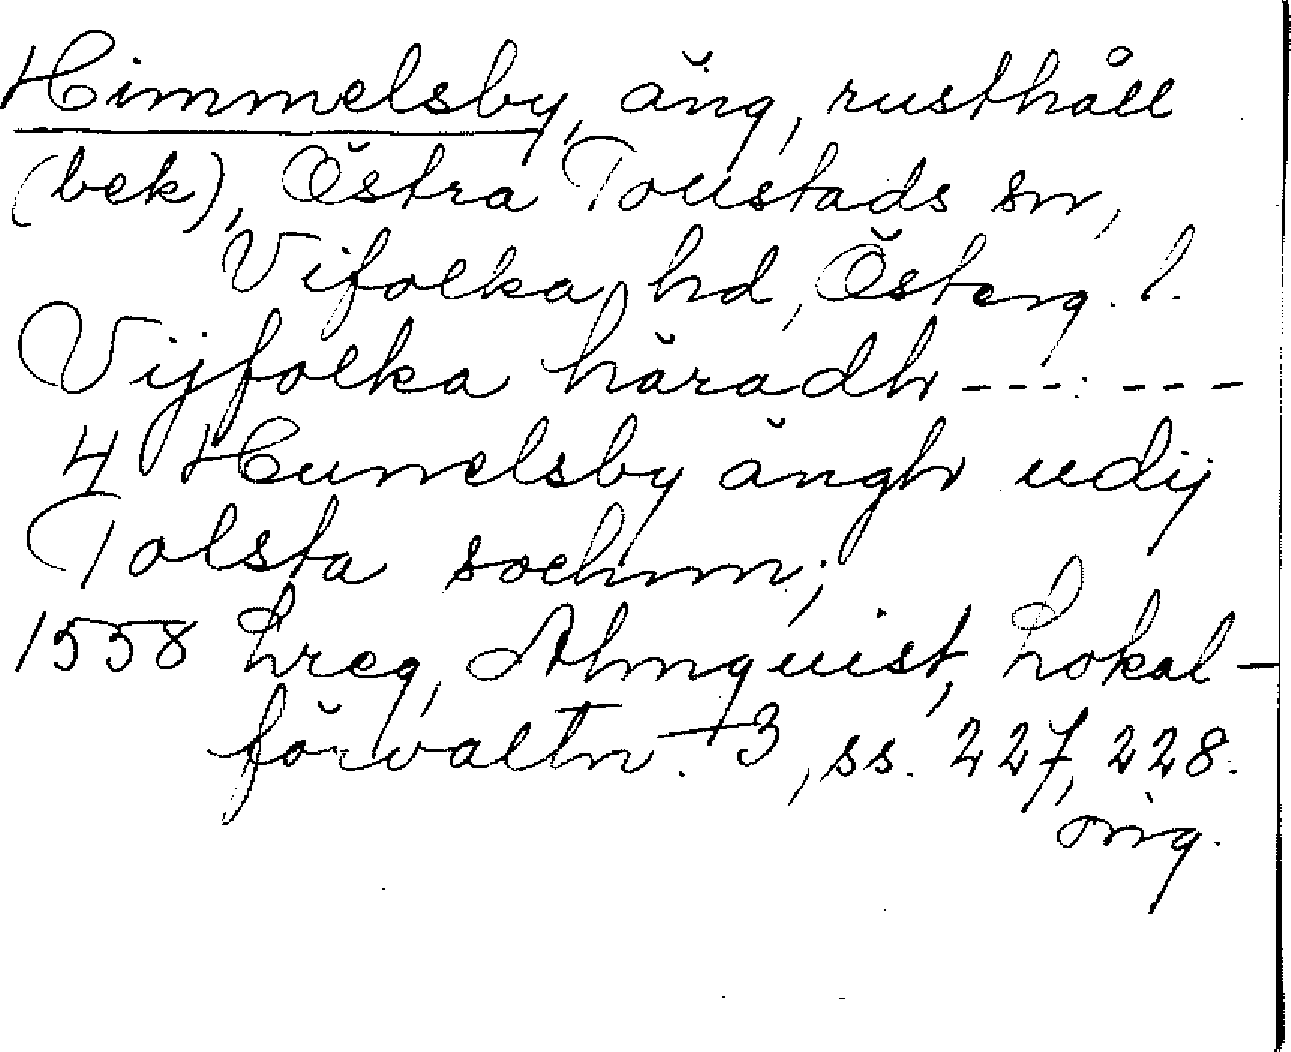 Himmelsby, äng, rusthåll
(bek), Östra Tollstads sn,
Vifolka hd, Österg. l.
Vijfolka häradh --- ---
4 Hunelsby ängh udij
Tolsta sochnn;
1558 Lreg, Almquist, Lokal-
förvaltn. +3, ss. 227, 228.
orig.